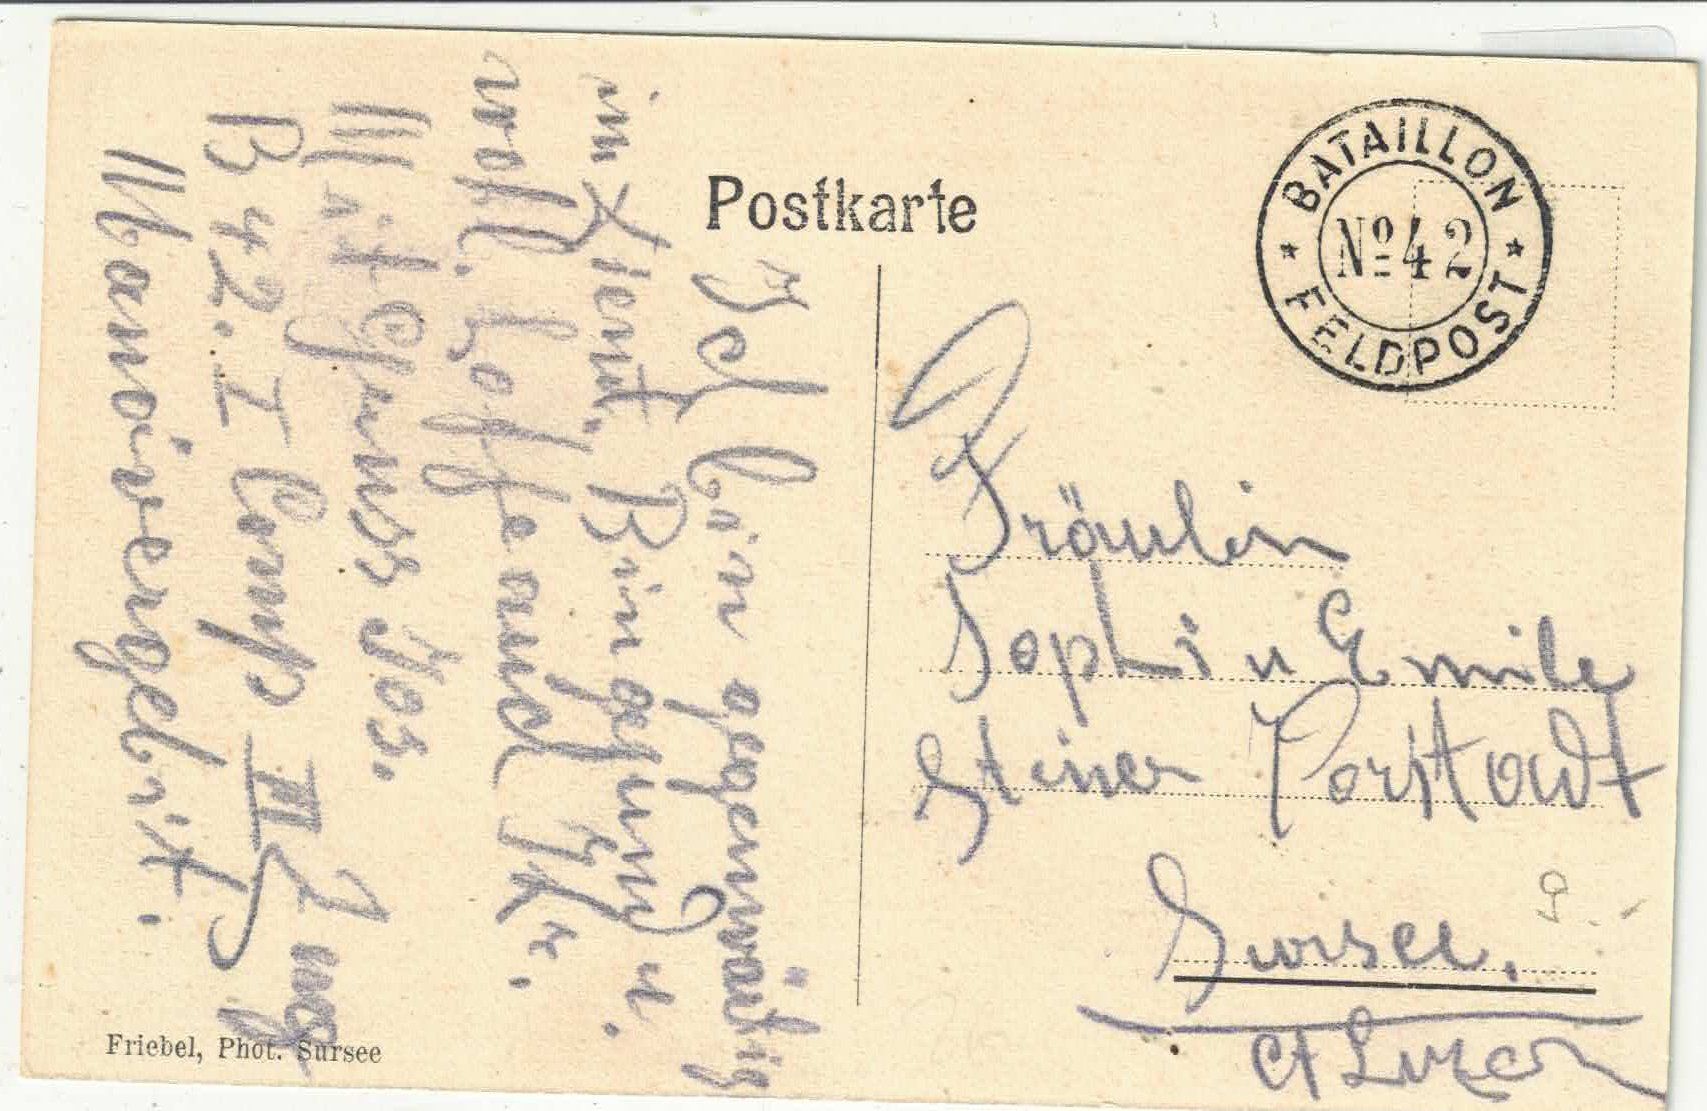 Postkarte
BATAILLON
No 42
FELDPOST
Ich bin gegenwärtig
im Dienst, Bin gesund u.
wohl. hoffe auch Ihr.
Mit Gruss Jos.
B 42. I Comp III Zug
Manövergebiet.
Fräulein
Sophi u Emile
Steiner Vorstadt
Sursee.
Ct Luzern
Friebel, Phot. Sursee